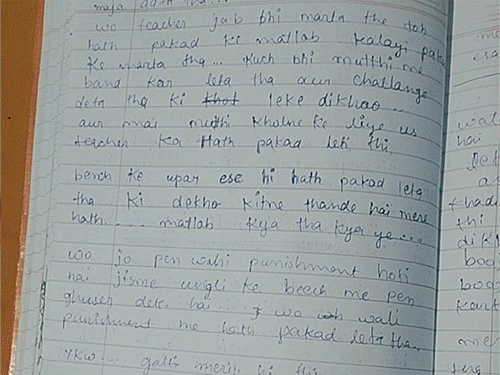 maja aata tha...
wo teacher jab bhi marta the toh
hath pakad ke matlab kalayi pakad
ke marta tha... kuch bhi mutthi me
band kar leta tha aur challange
deta tha ki leke dikhao....
aur mai muthi kholne ke liye us
teacher ka Hath pakad leti thi.
bench ke upar ese hi hath pakad leta
tha ki dekho kitne thande hai mere
hath.... matlab kya tha kya ye....
wo jo pen wali punishment hoti
hai jisme ungli ke beech me pen
ghuser dete hai... wo wali
punishment me hath pakad leta tha...
ykw... galti meri hi thi
wal
hai
let
a
thad
thi
dik
boo
boo
kart
me